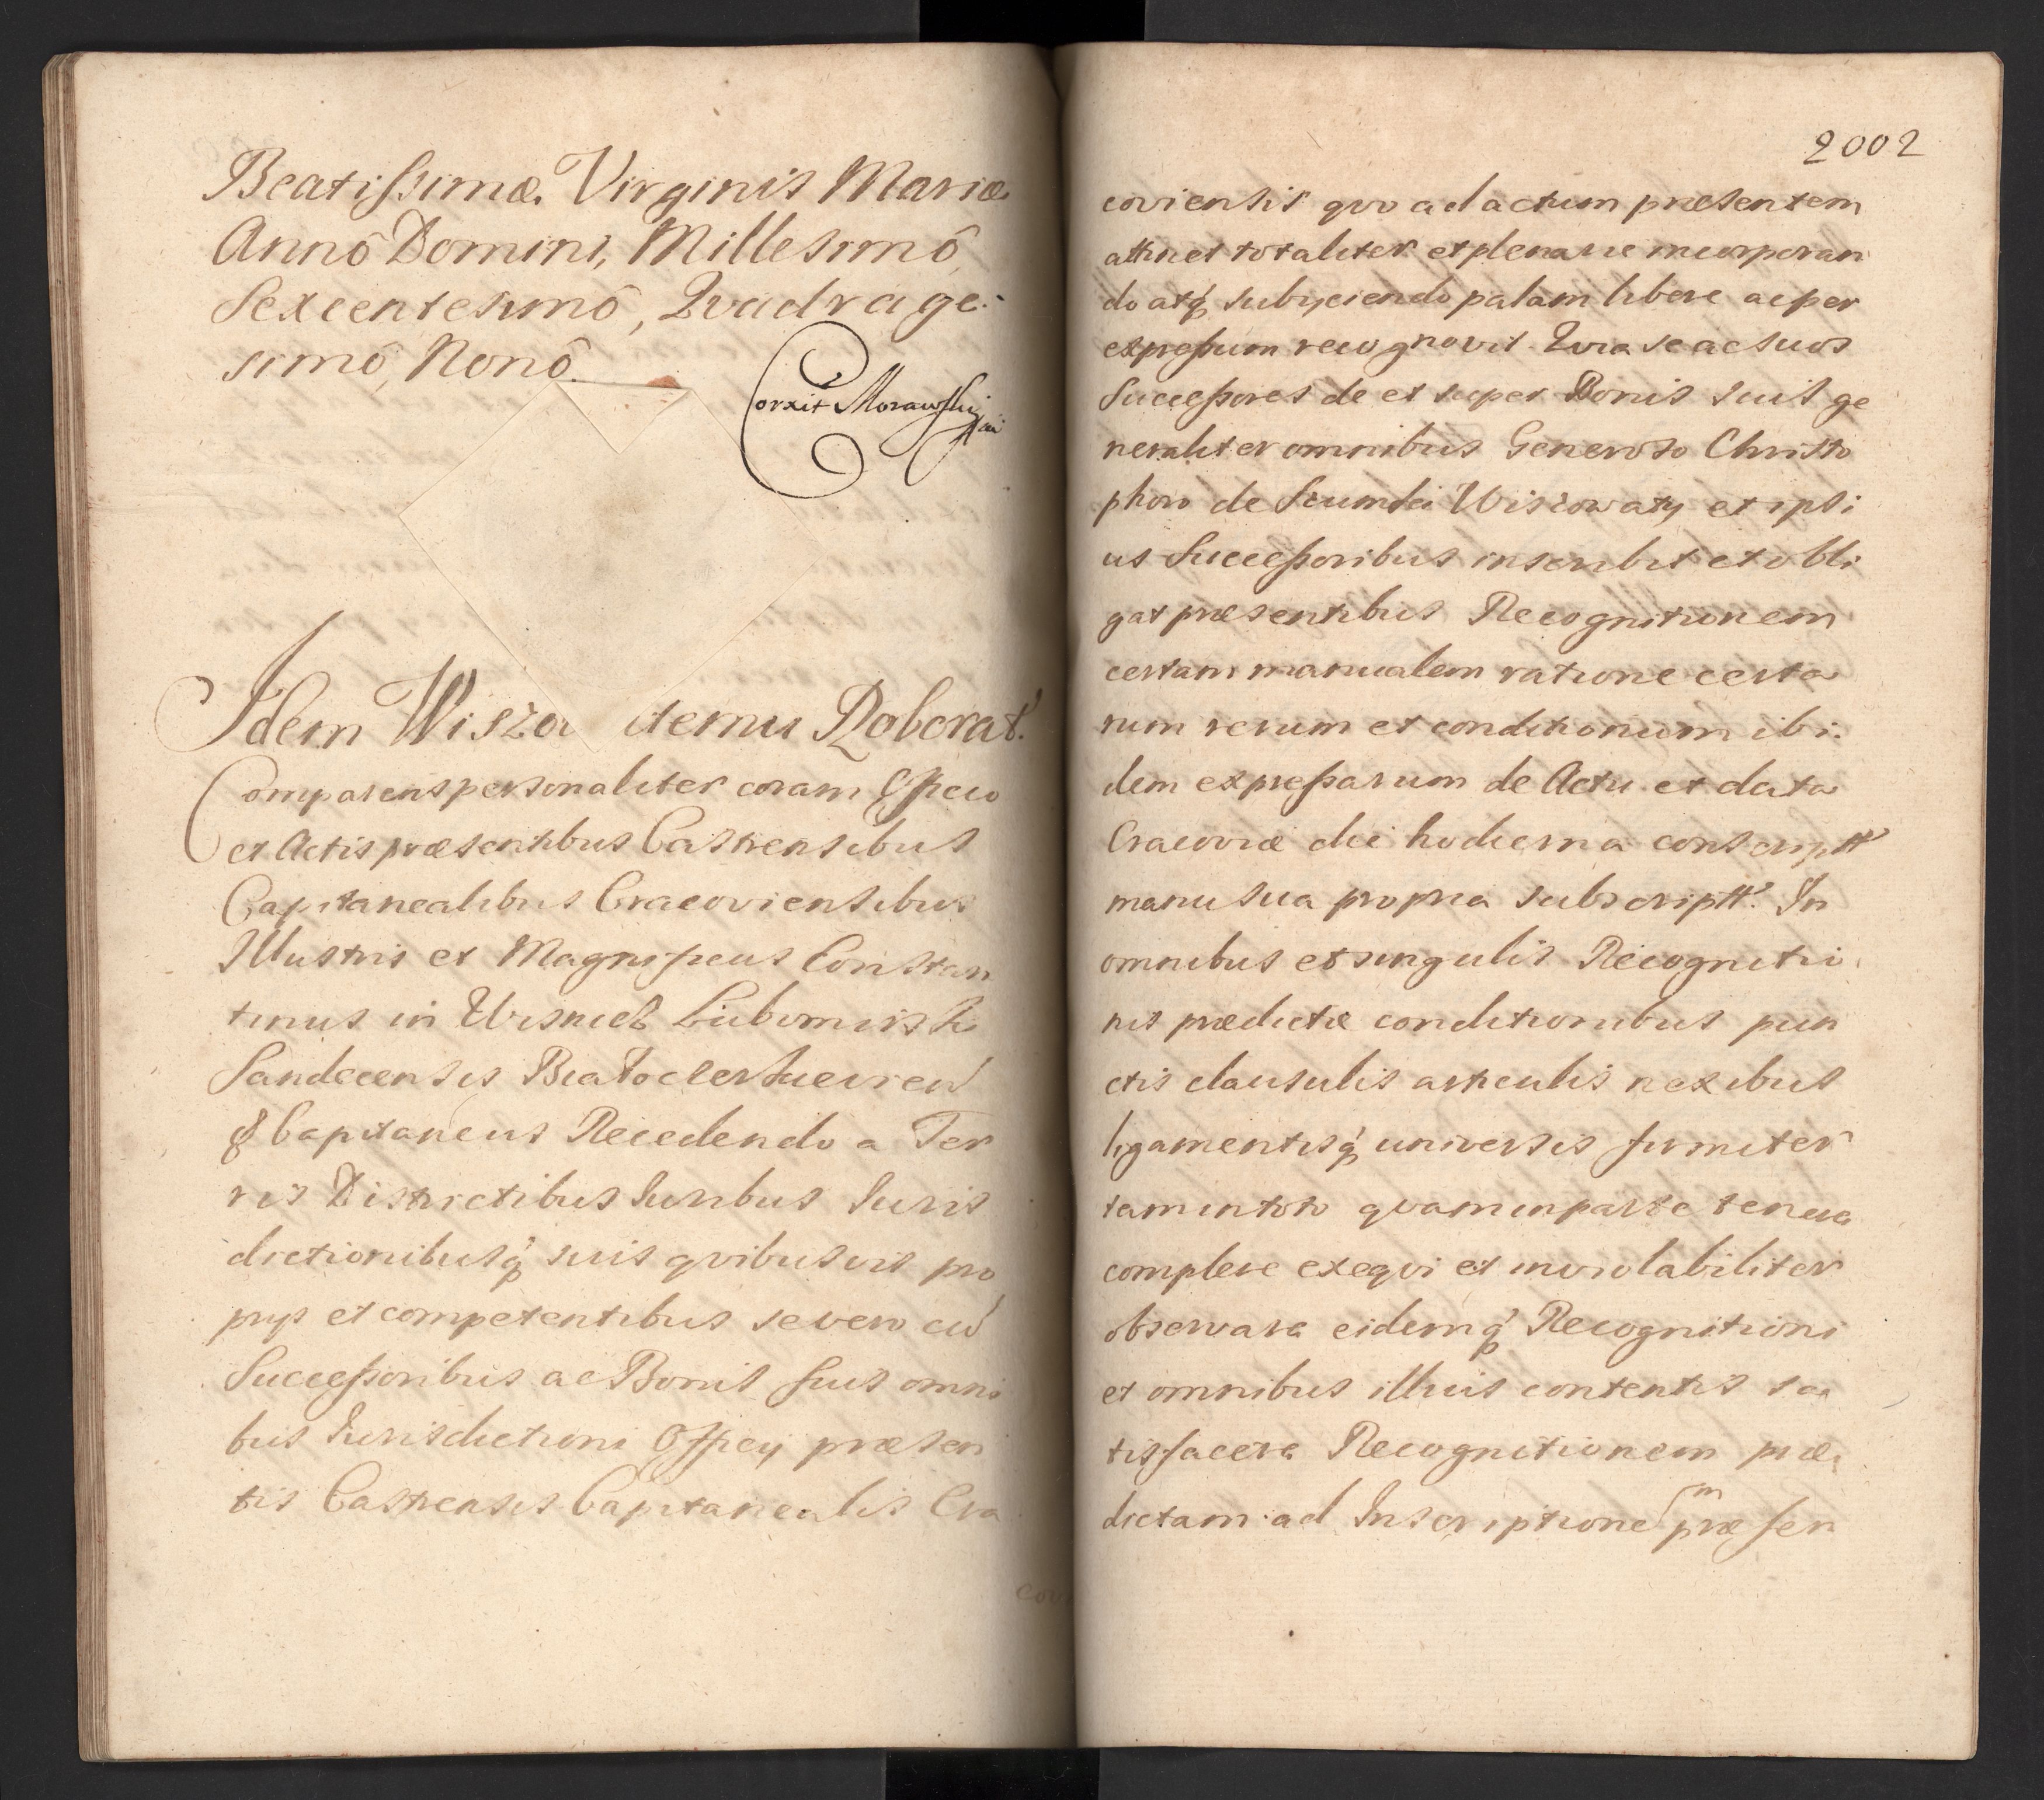 Beatissimæ Virginis Mariæ
Annô Domini, Millesimô,
Sexcentesimô, Qvadrage-
simô, Nonô.
Corxit Morawskij
Idem Wiszo itemu Roborat.
Comparens personaliter coram Officio
et Actis præsentibus Castrensibus
Capitanealibus Cracoviensibus
Illustris et Magnificus Constan
tinus in Wisnicz Lubomirski
Sandecensis
& Capitaneus Recedendo a Ter
ris Districtibus Iuribus Iuris
dictionibusq́ suis qvibusvis pro
prys et competentibus se vero cũ
Successoribus ac Bonis suis omni
bus Iurisdictioni Officij præsen
tis Castrensis Capitanealis Cra
2002
coviensis qvo ad actum præsentem
attinet totaliter et plenarie incorporan
do atq́ subyciendo palam libere ac per
expressum recognovit. Qvia se ac suos
Successores de et super Bonis suis ge
neraliter omnibus Generoso Christo
phoro de Szumski Wiszowaty et ipsi
us Successoribus inscribit et obli
gat præsentibus Recognitionem
certam manualem ratione certa
rum rerum et conditionum ibi-
dem expressarum de Actu et data
Cracoviæ die hodierna conscriptt
manu sua propria subscriptt. In
omnibus et singulis Recognitio
nis prædictæ conditionibus pun
ctis clausulis articulis nexibus
ligamentisq́ universis firmiter
tam in toto qvam in parte tenere
complere exeqvi et inviolabiliter
observare eidemq́ Recognitioni
et omnibus illius contentis sa
tisfacere Recognitionem præ
dictam ad Inscriptionem præsen